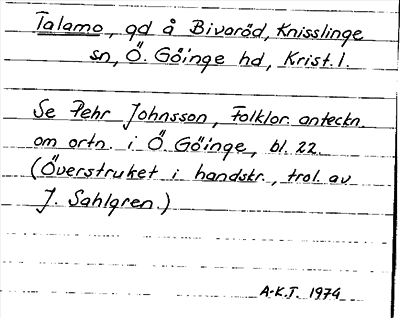 Talamo, gd å Bivaröd, Knisslinge
sn, Ö. Göinge hd, Krist. l.
Se Pehr Johnsson, Folklor. anteckn.
om ortn. i Ö. Göinge, bl. 22
(Överstruket i handskr., trol. av
J. Sahlgren.)
A-K.J. 1974